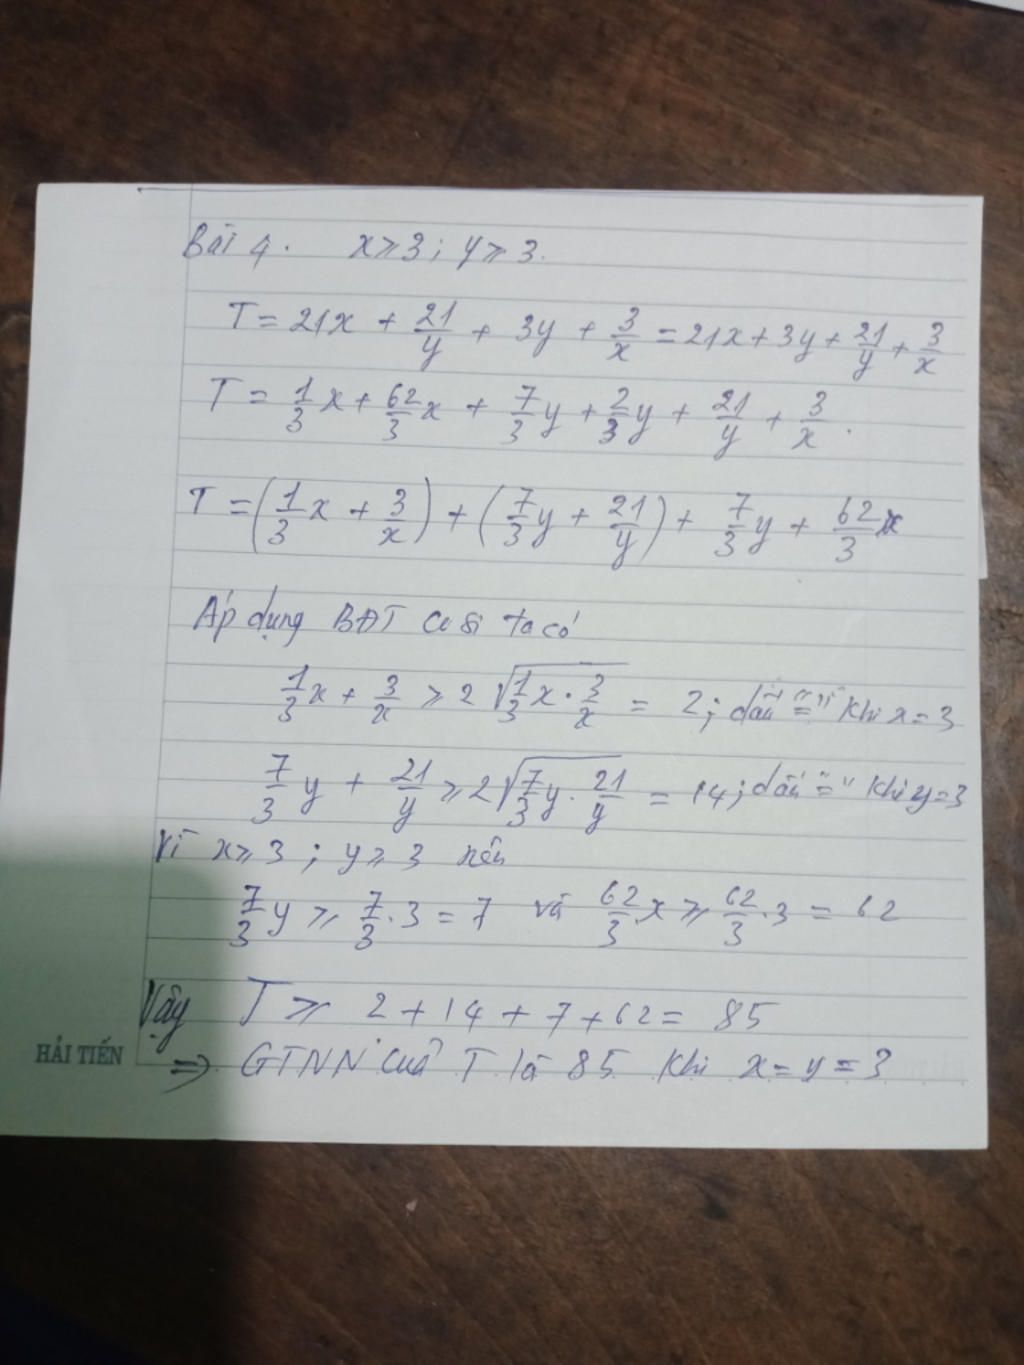 Bài 4. x ≥ 3 ; y ≥ 3.
T = 21x + 21/y + 3y + 3/x = 21x + 3y + 21/y + 3/x
T = 1/3 x + 62/3 x + 7/3 y + 2/3 y + 21/y + 3/x .
T = (1/3 x + 3/x) + (7/3 y + 21/y) + 7/3 y + 62/3 x
Áp dụng BĐT Co si ta có
1/3 x + 3/x ≥ 2 √(1/3 x · 3/x) = 2 ; dấu "=" khi x = 3
7/3 y + 21/y ≥ 2 √(7/3 y · 21/y) = 14 ; dấu "=" khi y = 3
Vì x ≥ 3 ; y ≥ 3 nên
7/3 y ≥ 7/3 · 3 = 7 và 62/3 · x ≥ 62/3 · 3 = 62
Vậy T ≥ 2 + 14 + 7 + 62 = 85
HẢI TIẾN
⇒ GTNN của T là 85 khi x = y = 3